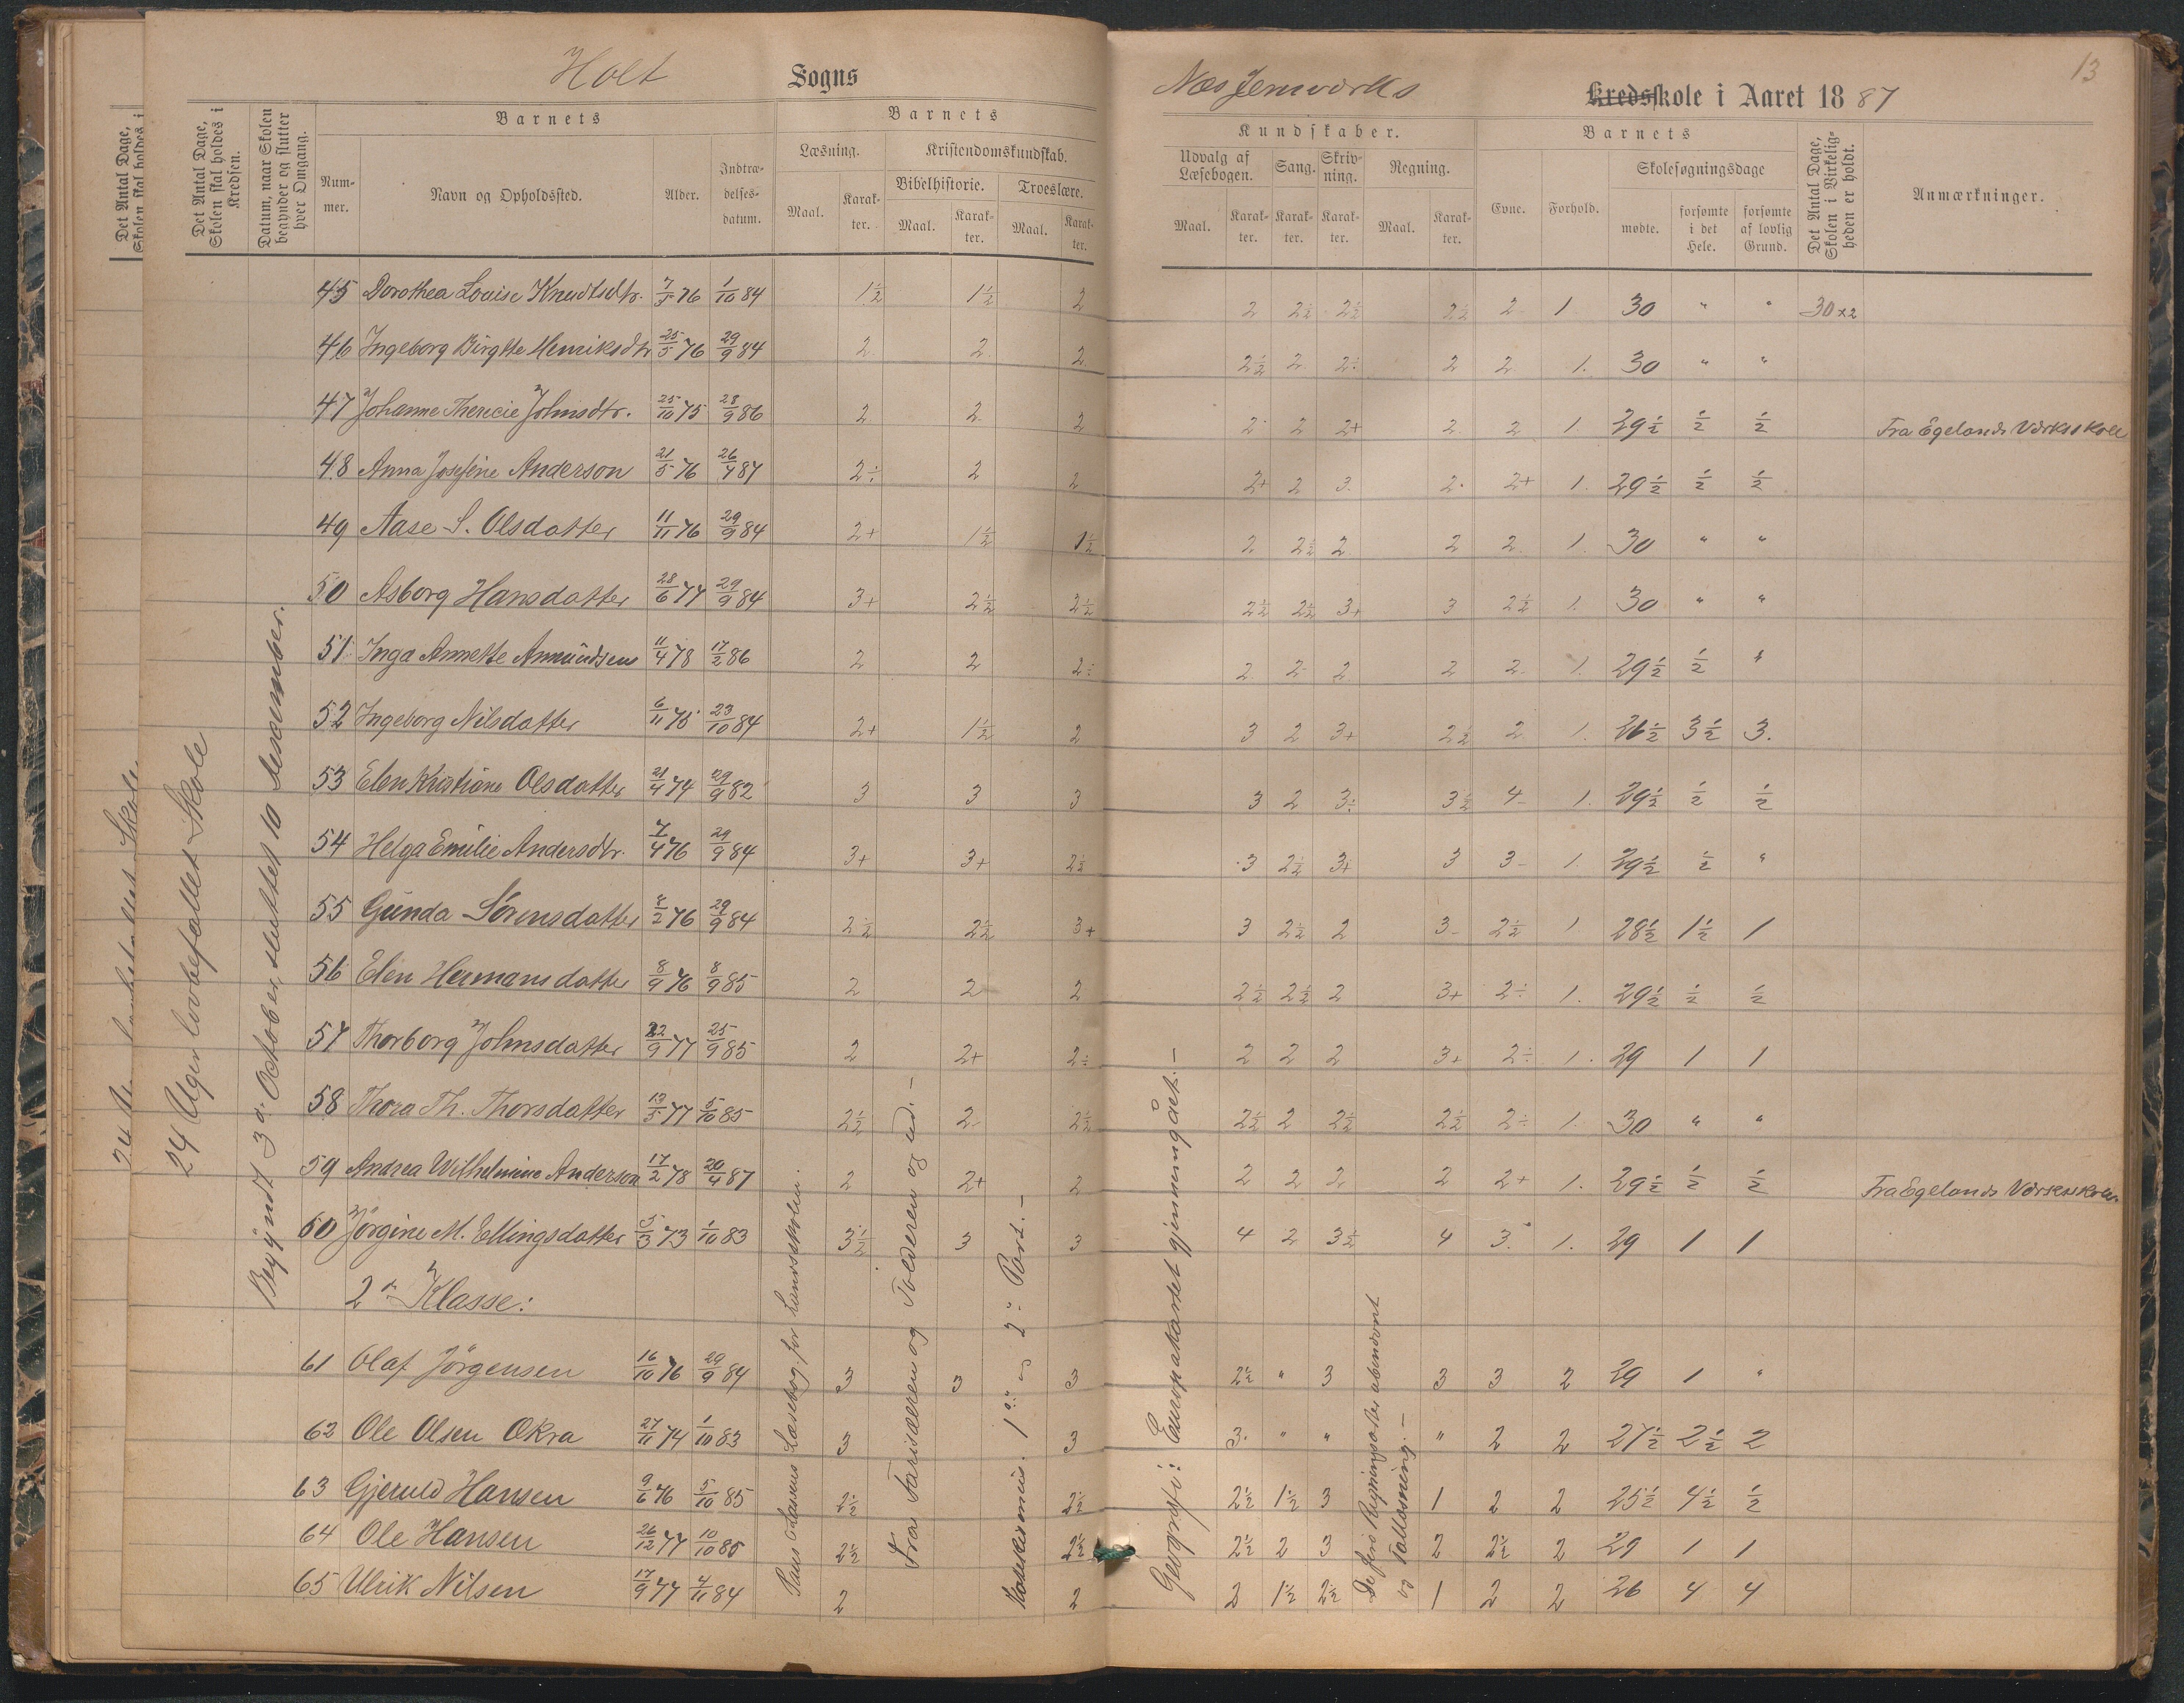 Holt Sogns
Næs Jernværks Kredsskole i Aaret 1887
13
Det Antal Dage, Skolen skal holdes i
Det Antal Dage, Skolen skal holdes i Kredsen.
Datum, naar Skolen begynder og slutter hver Omgang.
Barnets
Nummer.
Navn og Opholdssted.
Alder.
Indtrædelsesdatum.
Barnets
Læsning.
Maal.
Karakter.
Kristendomskundskab.
Bibelhistorie.
Maal.
Karakter.
Troeslære.
Maal.
Karakter.
Kundskaber.
Udvalg af Læsebogen.
Maal.
Karakter.
Sang.
Karakter.
Skrivning.
Karakter.
Regning.
Maal.
Karakter.
Barnets
Evne.
Forhold.
Skolesøgningsdage
mødte.
forsømte i det Hele.
forsømte af lovlig Grund.
Det Antal Dage, Skolen i Virkeligheden er holdt.
Anmærkninger.
45 Dorothea Louise Knudtsdtr. 7/5 76 1/10 84 1½ 1½ 2 2 2½ 2½ 2½ 2 1 30 " " 30×2
46 Ingeborg Birgitte Henriksdtr 25/5 76 29/9 84 2 2 2 2½ 2 2÷ 2 2 1. 30 " "
47 Johanne Thericie Johnsdtr. 25/10 75 28/9 86 2 2 2 2 2 2+ 2 2 1 29½ ½ ½ Fra Egelands Værksskole
48 Anna Josefine Anderson 21/5 76 26/4 87 2÷ 2 2 2+ 2 3. 2. 2+ 1. 29½ ½ ½
49 Aase S. Olsdatter 11/11 76 29/9 84 2+ 1½ 1½ 2 2½ 2 2 2 1. 30 " "
50 Asborg Hansdatter 28/6 77 29/9 84 3+ 2½ 2½ 2½ 2½ 3+ 3 2½ 1. 30 " "
51 Inga Annette Amundsen 11/4 78 17/2 86 2 2 2÷ 2 2 2 2 2 1. 29½ ½ "
52 Ingeborg Nilsdatter 6/11 75 23/10 84 2+ 1½ 2 3 2 3+ 2½ 2 1. 26½ 3½ 3.
53 Elen Kristiane Olsdatter 21/4 74 29/9 82 3 3 3 3 2 3÷ 3½ 4 1. 29½ ½ ½
54 Helga Emilie Andersdtr. 7/4 76 29/9 84 3+ 3+ 2½ 3 2½ 3+ 3 3 1. 29½ ½ "
55 Gunda Sörensdatter 8/2 76 29/9 84 2½ 2½ 3+ 3 2½ 2 3 2½ 1 28½ 1½ 1
56 Elen Hermansdatter 8/9 76 8/9 85 2 2 2 2½ 2½ 2 3+ 2÷ 1. 29½ ½ ½
57 Thorborg Johnsdatter 22/9 77 25/9 85 2 2+ 2÷ 2 2 2 3+ 2÷ 1. 29 1 1
58 Thora Th. Thorsdatter 13/5 77 5/10 85 2½ 2 2½ 2½ 2 2½ 2½ 2÷ 1. 30 " "
59 Andrea Wilhelmine Anderson 17/2 78 20/4 87 2 2+ 2 2 2 2 2 2+ 1. 29½ ½ ½ Fra Egelands Værksskole
60 Jörgine M. Ellingsdatter 5/3 73 1/10 83 3½ 3 3 4 2 3½ 4 3. 1. 29 1 1
2den Klasse:
61 Olaf Jörgensen 16/10 76 29/9 84 3 3 3 2½ " 3 3 3 2 29 1 "
62 Ole Olsen Økra 27/11 74 1/10 83 3 3 3. " " " 2 2 27½ 2½ 2
63 Gjeruld Hansen 9/6 76 5/10 85 2½ 2½ 2½ 1½ 3 1 2 2 25½ 4½ ½
64 Ole Hansen 26/12 77 10/10 85 2½ 2½ 2½ 2 3 2 2½ 2 29 1 1
65 Ulrik Nilsen 17/9 77 4/11 84 2 2 2 1½ 2½ 1 2 2 26 4 4
24 Uger lovbefallet Skole
Begyndt 3die October, sluttet 10 Desember.
Læsebog for
Fra Farisæeren og Tolderen og ud. —
1ste og 2den Part. —
Geografi: Europakartet gjennemgået. —
De fire Regningsarter
og Tallæsning. —